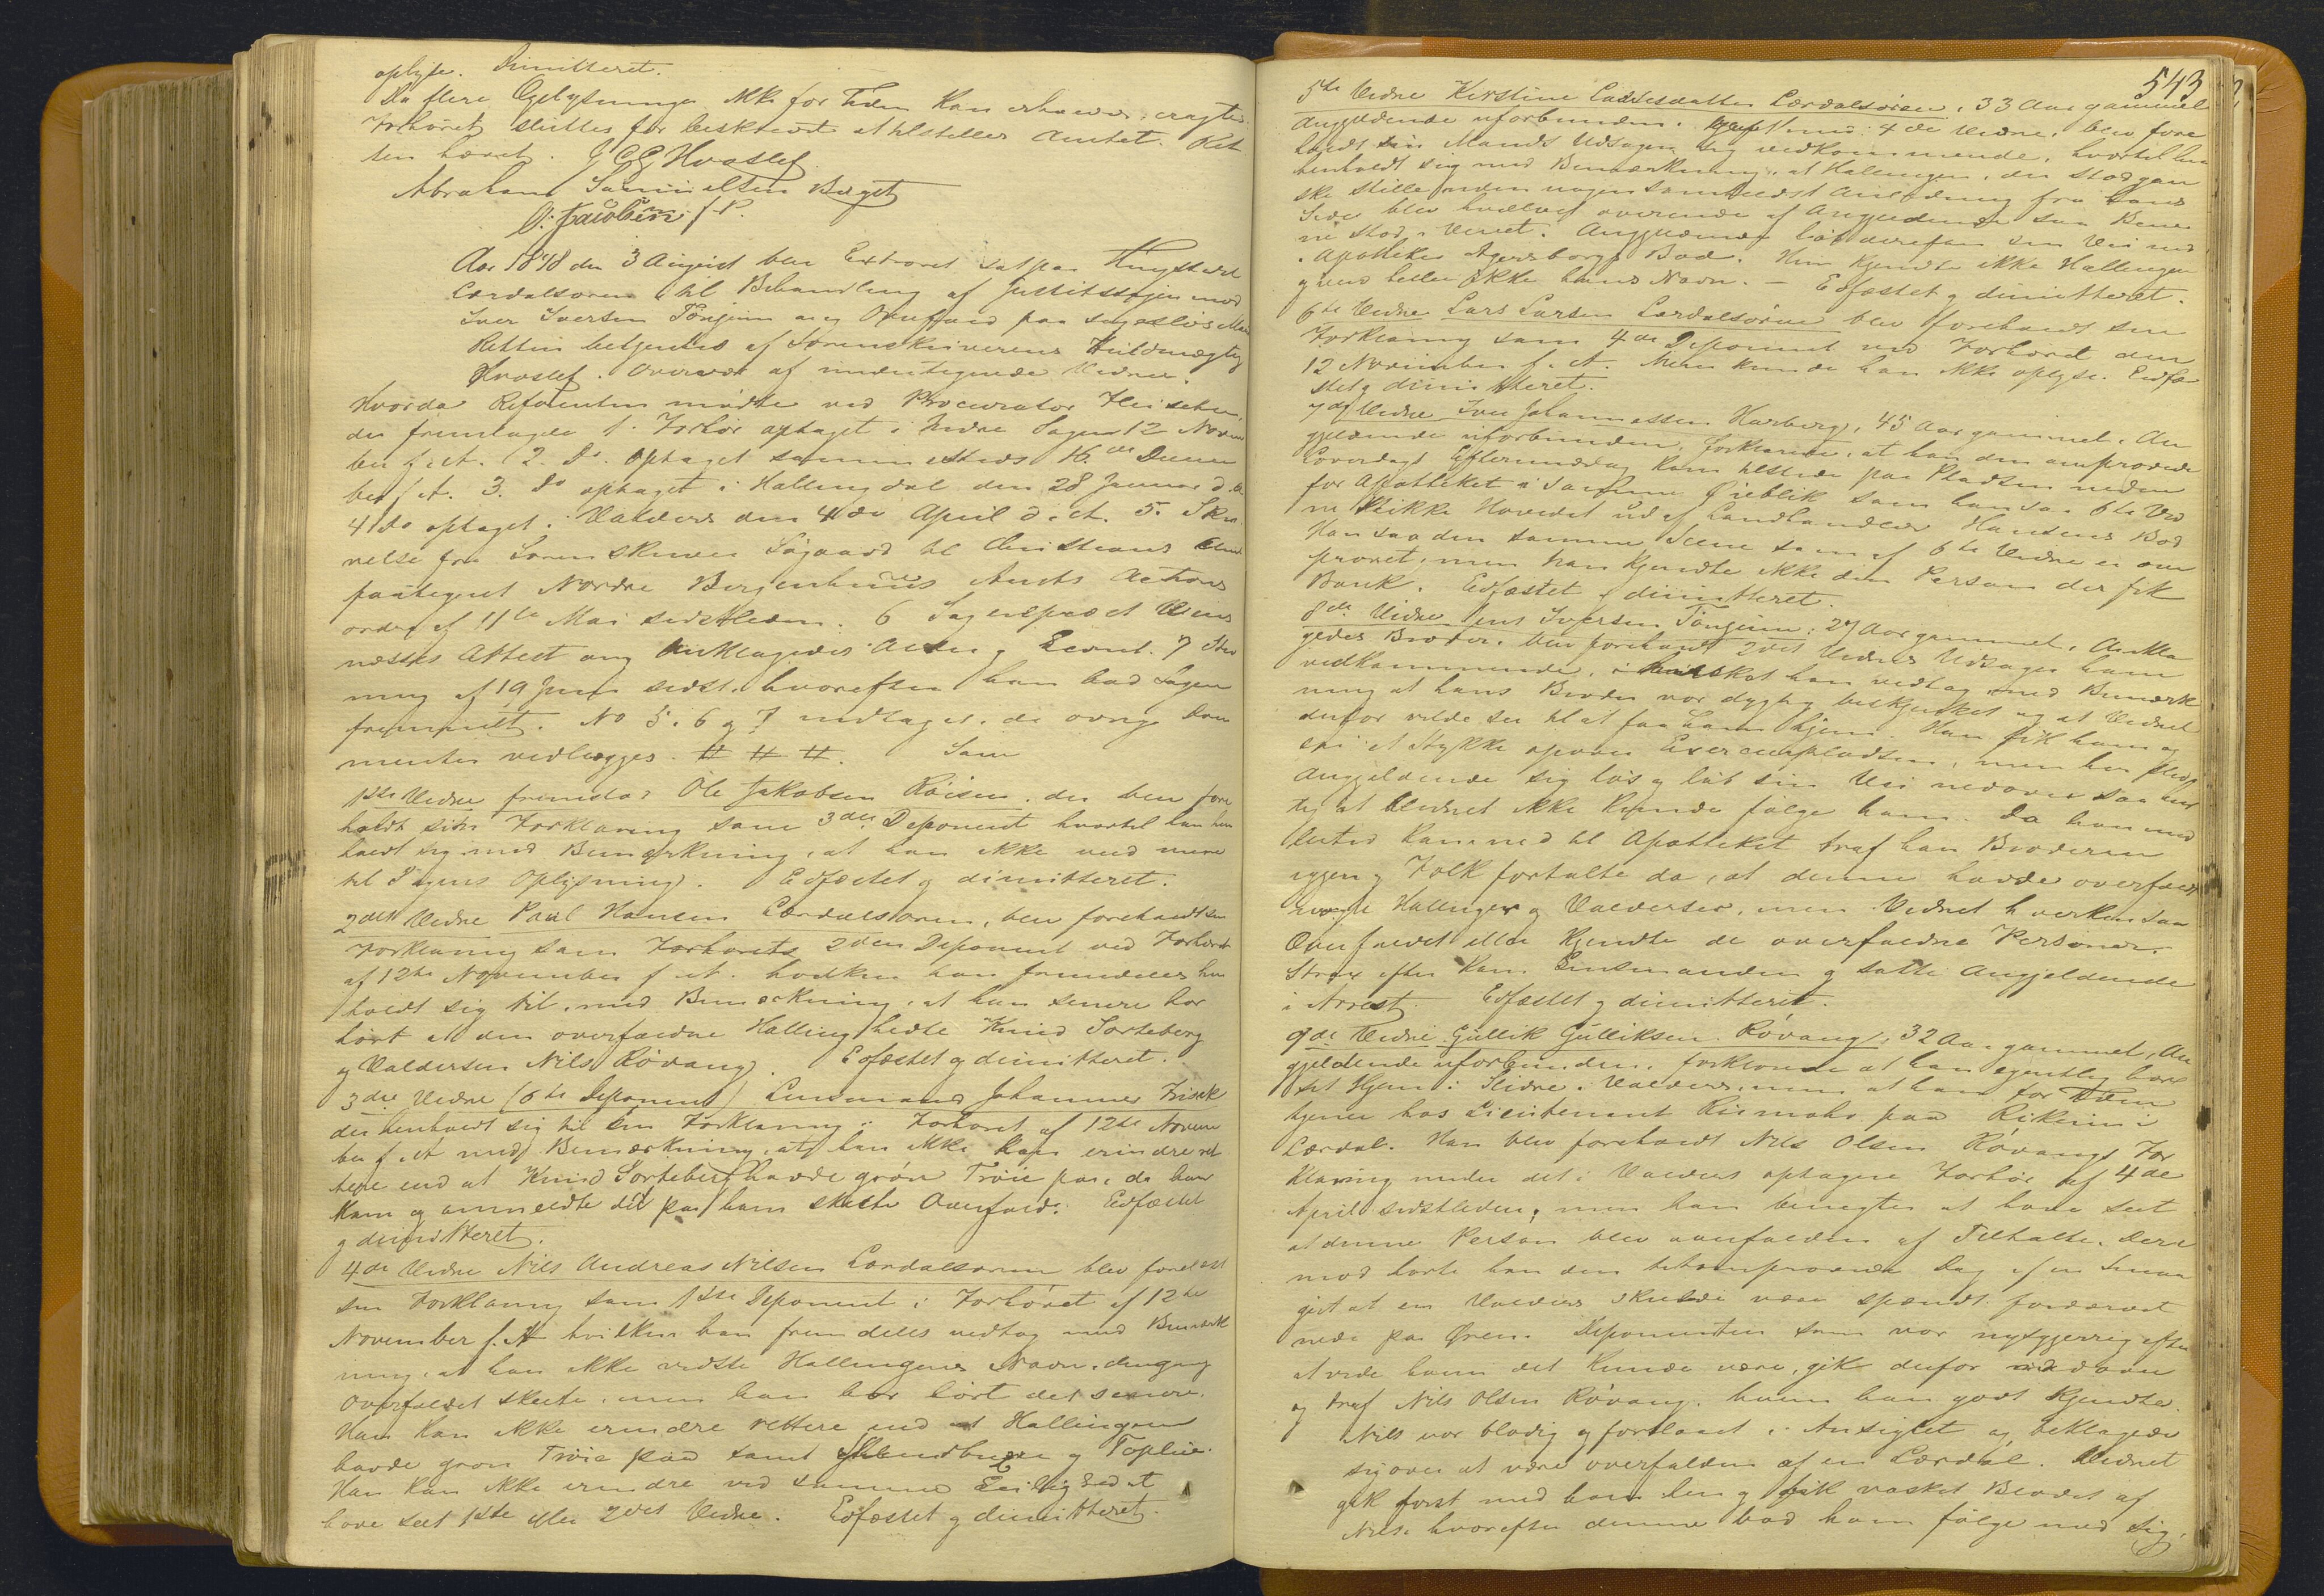 oplyse. Dimitteret.
Da flere Oplysninger ikke for Tiden kan erhverves, eragtes
Forhøret sluttet for beskrevet at tilstilles Amtet. Ret
ten hævet. G C G Hvoslef
Abraham Samuelsen Bøget
O. Jacobsen f. P.
Aar 1878 den 3 August blev Extraret sat paa
Lærdalsøren til Behandling af Justitssagen mod
Iver Iversen Tønjum ang Overfald paa sagesløs Mand
Retten betjentes af Sorenskriverens Fuldmægtig
Hvoslef. Overvær af undertegnede Vidner.
Hvorda Referenten mødte ved Procurator
der fremlagde 1. Forhør optaget i Indre Sogn 12 Novem
ber f. A. 2. Do. optaget sammesteds 16de Decem
ber f A. 3. do optaget i Hallingdal den 28 Januar d. A.
4 do optaget i Valders den 4de April d. A. 5. Skri
velse fra Sorenskriver Søgaard til Christians Amt
paategnet Nordre Bergenhuus Amts Actions
ordre af 11te Mai sidstleden. 6 Sogneprest
næsses Attest ang Anklagedes Alder og Levnet. 7 Stev
ning af 19 Juni sidst. hvorefter han bad Sagen
fremmet. No 5. 6 og 7 indtages. de øvrige Docu
menter vedlægges. # # #. Som
1ste Vidne fremstod Ole Jakobsen Røisen. der blev fore
holdt sin Forklaring som 3die Deponent hvortil han hen
holdt sig med Bemærkning, at han ikke ved mere
til Sagens Oplysning. Edfæstet og dimitteret.
2det Vidne Paul Hansen Lærdalsøren, blev foreholdt sin
Forklaring som Forhørets 2den Deponent ved Forhøret
af 12te November f. A. hvilken han fremdeles hen
holdt sig til, med Bemærkning, at han senere har
hørt at den overfaldne Halling hedte Knud Sorteberg
og Valdersen Nils Røvang. Edfæstet og dimitteret.
3die Vidne (6te Deponent) Lensmand Johannes Frisak
der henholdt sig til sin Forklaring i Forhøret af 12te Novem
ber f. A. med Bemærkning, at han ikke kan erindre ret
tere end at Knud Sorteberg havde grøn Trøie paa, da han
kom og anmeldte det paa ham skete Overfald. Edfæstet
og dimitteret.
4de Vidne Nils Andreas Nilsen Lærdalsøren blev forelæst
sin Forklaring som 1ste Deponent i Forhøret af 12te
November f. A. hvilken han fremdeles vedtog med Bemærk
ning, at han ikke vidste Hallingens Navn, dengang
Overfaldet skete, men han har hørt det senere.
Han kan ikke erindre rettere end at Hallingen
havde grøn Trøie paa samt og Toplue.
Han kan ikke erindre ved samme Leilighed at
have seet 1ste eller 2det Vidne. Edfæstet og dimitteret.
543
5te Vidne Kirstine Larsdatter Lærdalsøren, 33 Aar gammel
Angjeldende uforbunden. gift med 4de Vidne, blev fore
holdt sin Mands Udsagn sig vedkommende, hvortil hun
henholdt sig med Bemærkning, at Hallingen, der stod gan
ske stille uden nogen somhelst Anledning fra hans
Side blev hvælvet overende af Angjeldende saa Benene
stod i Veiret. Angjeldende løb derefter sin Vei ned
i Apotheker Agersborgs Bod. Hun kjendte ikke Hallingen
og ved heller ikke hans Navn. – Edfæstet og dimitteret.
6te Vidne Lars Larsen Lærdalsøren blev foreholdt sin
Forklaring som 4de Deponent ved Forhøret den
12 November f. A. Mere kunde han ikke oplyse. Edfæ
stet og dimitteret.
7de Vidne Iver Johannessen Hæreberg, 45 Aar gammel, An
gjeldende uforbunden, forklarede, at han den omprøvede
Løverdags Eftermiddag kom tilstede paa Pladsen neden
for Apotheket i samme Øieblik som han saa 6te Vid
ne stikke Hovedet ud af Landhandler Hansens Bod
Han saa den samme Scene som af 6te Vidne er om
prøvet, men han kjendte ikke den Person der fik
Bank. Edfæstet og dimitteret.
8de Vidne Jens Iversen Tønjum, 27 Aar gammel, Ankla
gedes Broder. blev foreholdt 2det Vidnes Udsagn ham
vedkommende, i hvilket han vedtog med Bemærk
ning at hans Broder var dygtig beskjenket og at Vidnet
derfor vilde see til at faa ham hjem. Han fik ham og
saa et Stykke opover Exercerpladsen, men her sled
Angjeldende sig løs og løb sin Vei nedover saa hur
tig at Vidnet ikke kunde følge ham. Da han ned
kom ned til Apotheket traf han Broderen
igjen og Folk fortalte da, at denne havde overfaldt
nogle Hallinger og Valderser, men Vidnet hverken saa
Overfaldet eller kjendte de overfaldne Personer.
Strax efter kom Lensmanden og satte Angjeldende
i Arrest. Edfæstet og dimitteret.
9de Vidne Gullik Gulliksen Røvang, 32 Aar gammel, An
gjeldende uforbunden, forklarede at han egentlig har
sit Hjem i Slidre i Valders, men at han for Tiden
tjener hos Lieutenant paa Rikheim i
Lærdal. Han blev foreholdt Nils Olsen Røvangs For
klaring under det i Valders optagne Forhør af 4de
April sidstleden, men han benegter at have seet
at denne Person blev overfalden af Tiltalte. Der
mod hørte han den omprøvede Dag af en Smaa
gut at en Valders skulde være spændt fordærvet
nede paa Øren. Deponenten som var nysgjerrig efter
at vide hvem det kunde være, gik derfor ned over
og traf Nils Olsen Røvang, hvem han godt kjendte.
Nils var blodig og forslaaet i Ansigtet og beklagede
sig over at være overfalden af en Lærdøl. Vidnet
gik først med ham hen og fik vasket Blodet af
Nils, hvorefter denne bad ham følge med sig,